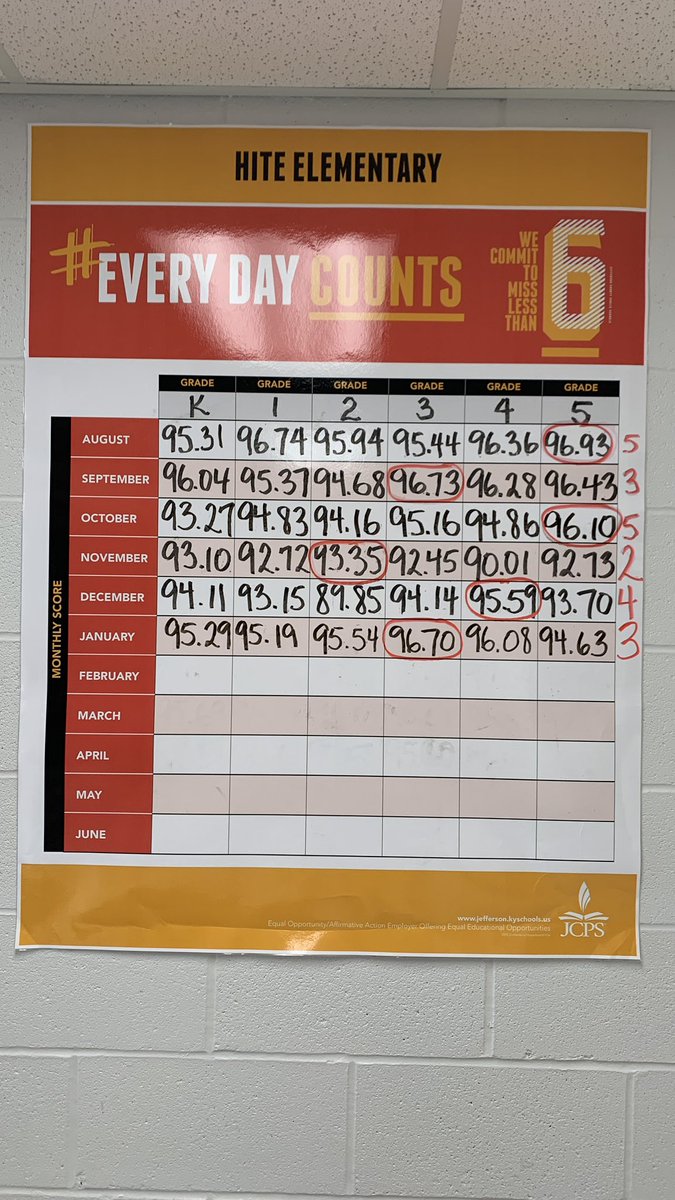 HITE ELEMENTARY
#EVERY DAY COUNTS
WE
COMMIT
TO
MISS
LESS
THAN
6
GRADE GRADE GRADE GRADE GRADE GRADE
K 1 2 3 4 5
MONTHLY SCORE
AUGUST 95.31 96.74 95.94 95.44 96.36 96.93 5
SEPTEMBER 96.04 95.37 94.68 96.73 96.28 96.43 3
OCTOBER 93.27 94.83 94.16 95.16 94.86 96.10 5
NOVEMBER 93.10 92.72 93.35 92.45 90.01 92.73 2
DECEMBER 94.11 93.15 89.85 94.14 95.59 93.70 4
JANUARY 95.29 95.19 95.54 96.70 96.08 94.63 3
FEBRUARY
MARCH
APRIL
MAY
JUNE
www.jefferson.kyschools.us
Equal Opportunity/Affirmative Action Employer Offering Equal Educational Opportunities
JCPS